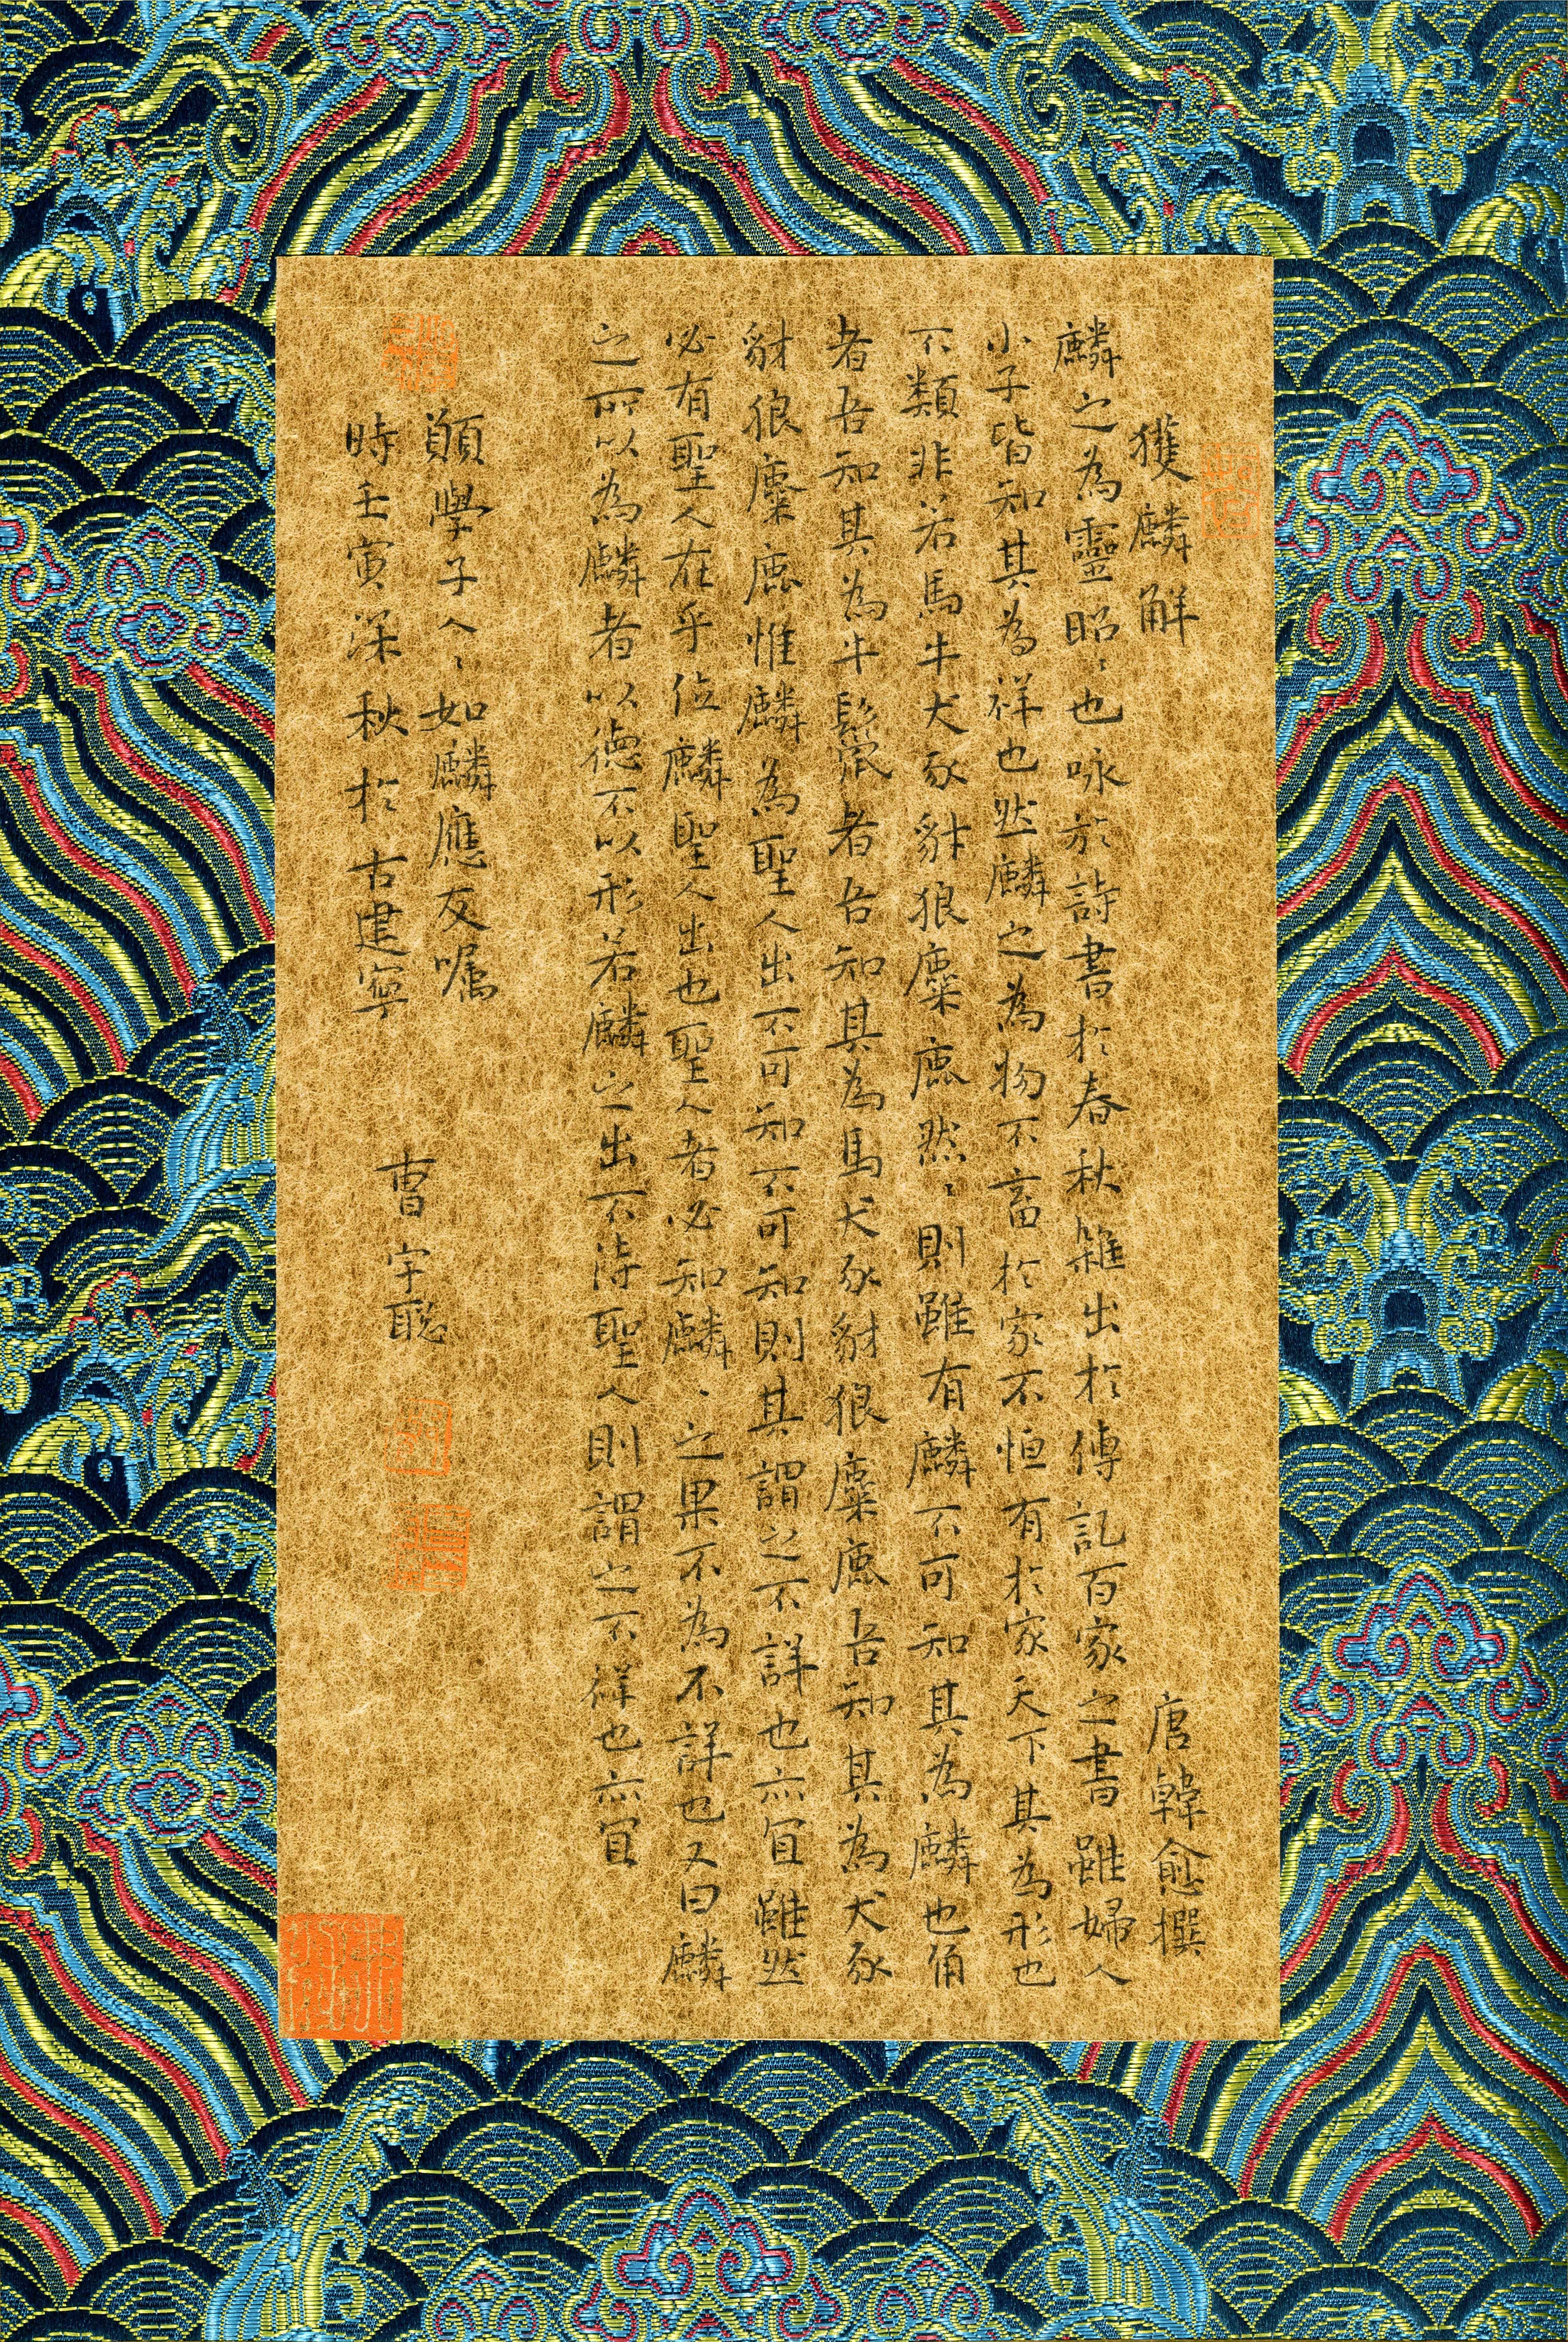 獲麟解
唐韓愈撰
麟之為靈昭〻也咏於詩書於春秋雜出於傳記百家之書雖婦人
小子皆知其為祥也然麟之為物不畜於家不恒有於家天下其為形也
不類非若馬牛犬豕豺狼麋鹿然〻則雖有麟不可知其為麟也角
者吾知其為牛鬣者吾知其為馬犬豕豺狼麋鹿吾知其為犬豕
豺狼麋鹿惟麟為聖人出不可知不可知則其謂之不詳也亦宜雖然
必有聖人在乎位麟聖人出也聖人者必知麟〻之果不為不詳也又曰麟
之所以為麟者以德不以形若麟之出不待聖人則謂之不祥也亦宜
願學子人〻如麟應友囑
時壬寅深秋於古建寧
曹宇聪